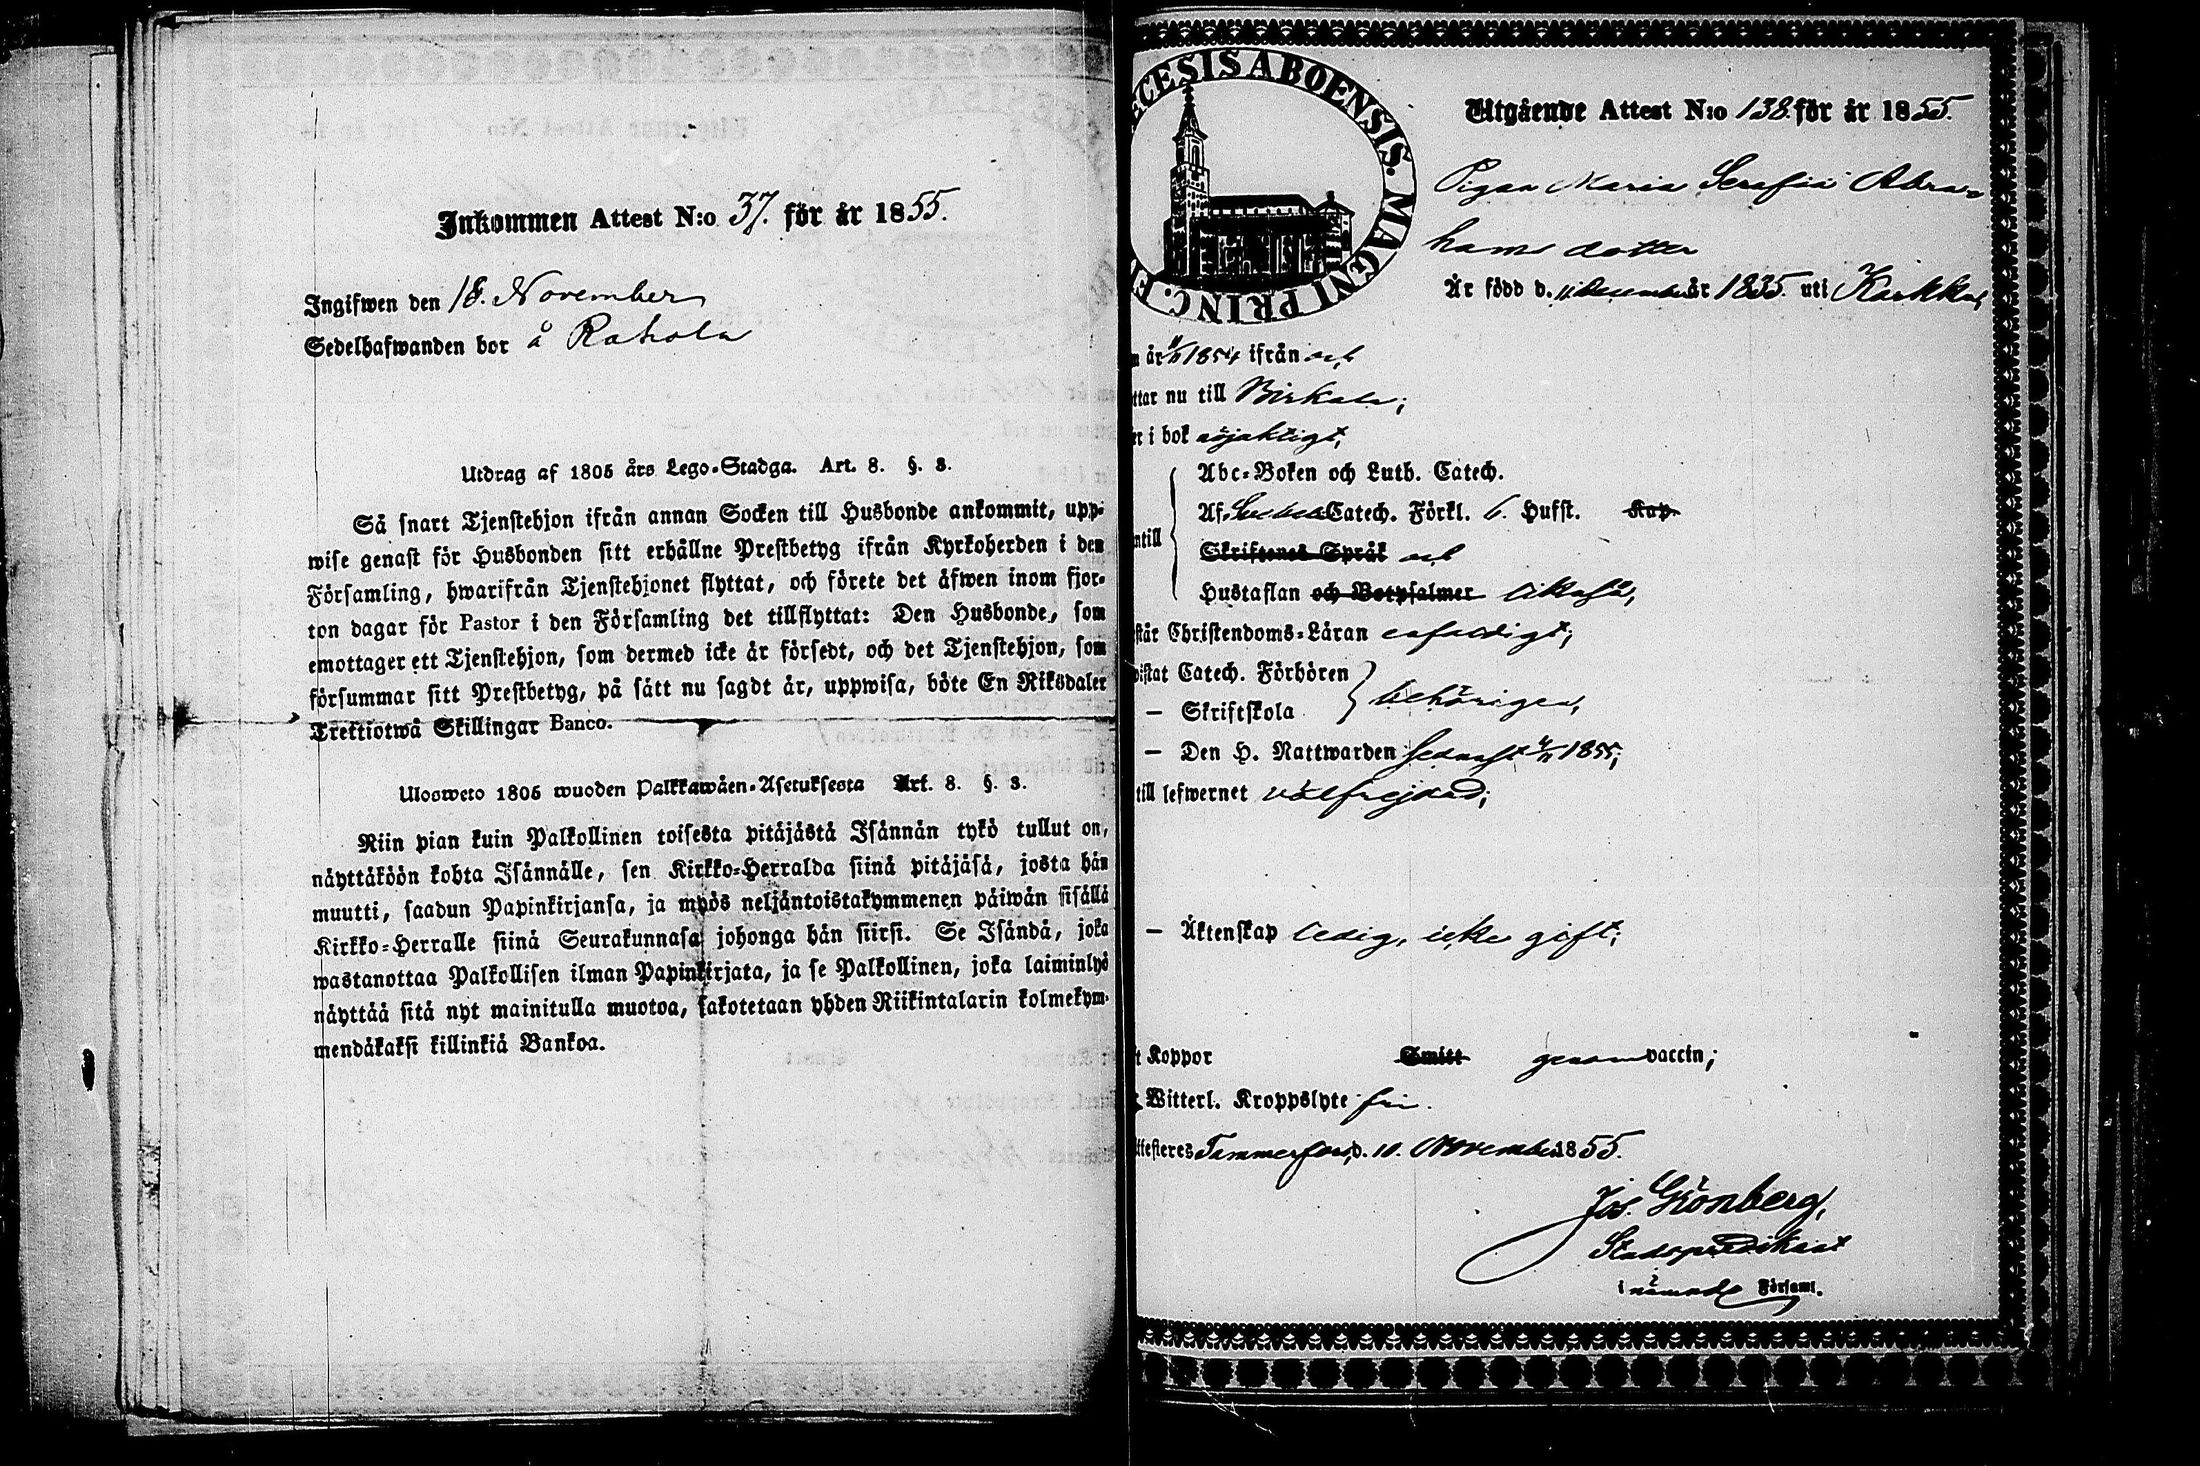 Inkommen Attest N:o 37. för år 1855.
Ingifwen den 18. November
Sedelhafwanden bor å Rahola
Utdrag af 1805 års Lego-Stadga. Art. 8. §. 3.
Så snart Tjenstehjon ifrån annan Socken till Husbonde ankommit, upp-
wise genast för Husbonden sitt erhållne Prestbetyg ifrån Kyrkoherden i den
Församling, hwarifrån Tjenstehjonet flyttat, och förete det äfwen inom fjor-
ton dagar för Pastor i den Församling det tillflyttat: Den Husbonde, som
emottager ett Tjenstehjon, som dermed icke är försedt, och det Tjenstehjon, som
försummar sitt Prestbetyg, på sätt nu sagdt är, uppwisa, böte En Riksdaler
Trettiotwå Skillingar Banco.
Ulosweto 1805 wuoden Palkkawäen-Asetuksesta Art. 8. §. 3.
Niin pian kuin Palkollinen toisesta pitäjästä Isännän tykö tullut on,
näyttäköön kohta Isännälle, sen Kirkko-Herralda siinä pitäjäsä, josta hän
muutti, saadun Papinkirjansa, ja myös neljäntoistakymmenen päiwän sisällä
Kirkko-Herralle siinä Seurakunnasa johonga hän siirsi. Se Isändä, joka
wastanottaa Palkollisen ilman Papinkirjata, ja se Palkollinen, joka laiminlyö
näyttää sitä nyt mainitulla muotoa, sakotetaan yhden Riikintalarin kolmekym-
mendäkaksi killinkiä Bankoa.
CESIS ABOENSIS. MAGNI PRINC. F
Utgående Attest N:o 138. för år 1855.
Pigan Maria Serafia Abra-
hams dotter
Är född d. 11 December år 1835. uti Karkku,
år 1854 ifrån
ttar nu till Birkala;
i bok nöjaktigt,
Abc-Boken och Luth. Catech.
Af Catech. Förkl. 6. Hufst. Kap.
ntill Skriftenes Språk och
Hustaflan och Botpsalmer likaså,
står Christendoms-Läran enfaldigt;
istat Catech. Förhören
— Skriftskola behörigen,
— Den H. Nattwarden senast 1855;
till lefwernet välfrejdad;
— Äktenskap ledig, icke gift;
t Koppor Smitt genom vaccin;
Witterl. Kroppslyte fri.
ttesteres Tammerfors, d. 10. November 1855.
Jos. Grönberg,
Stadspredikant
i nämnde Församl.